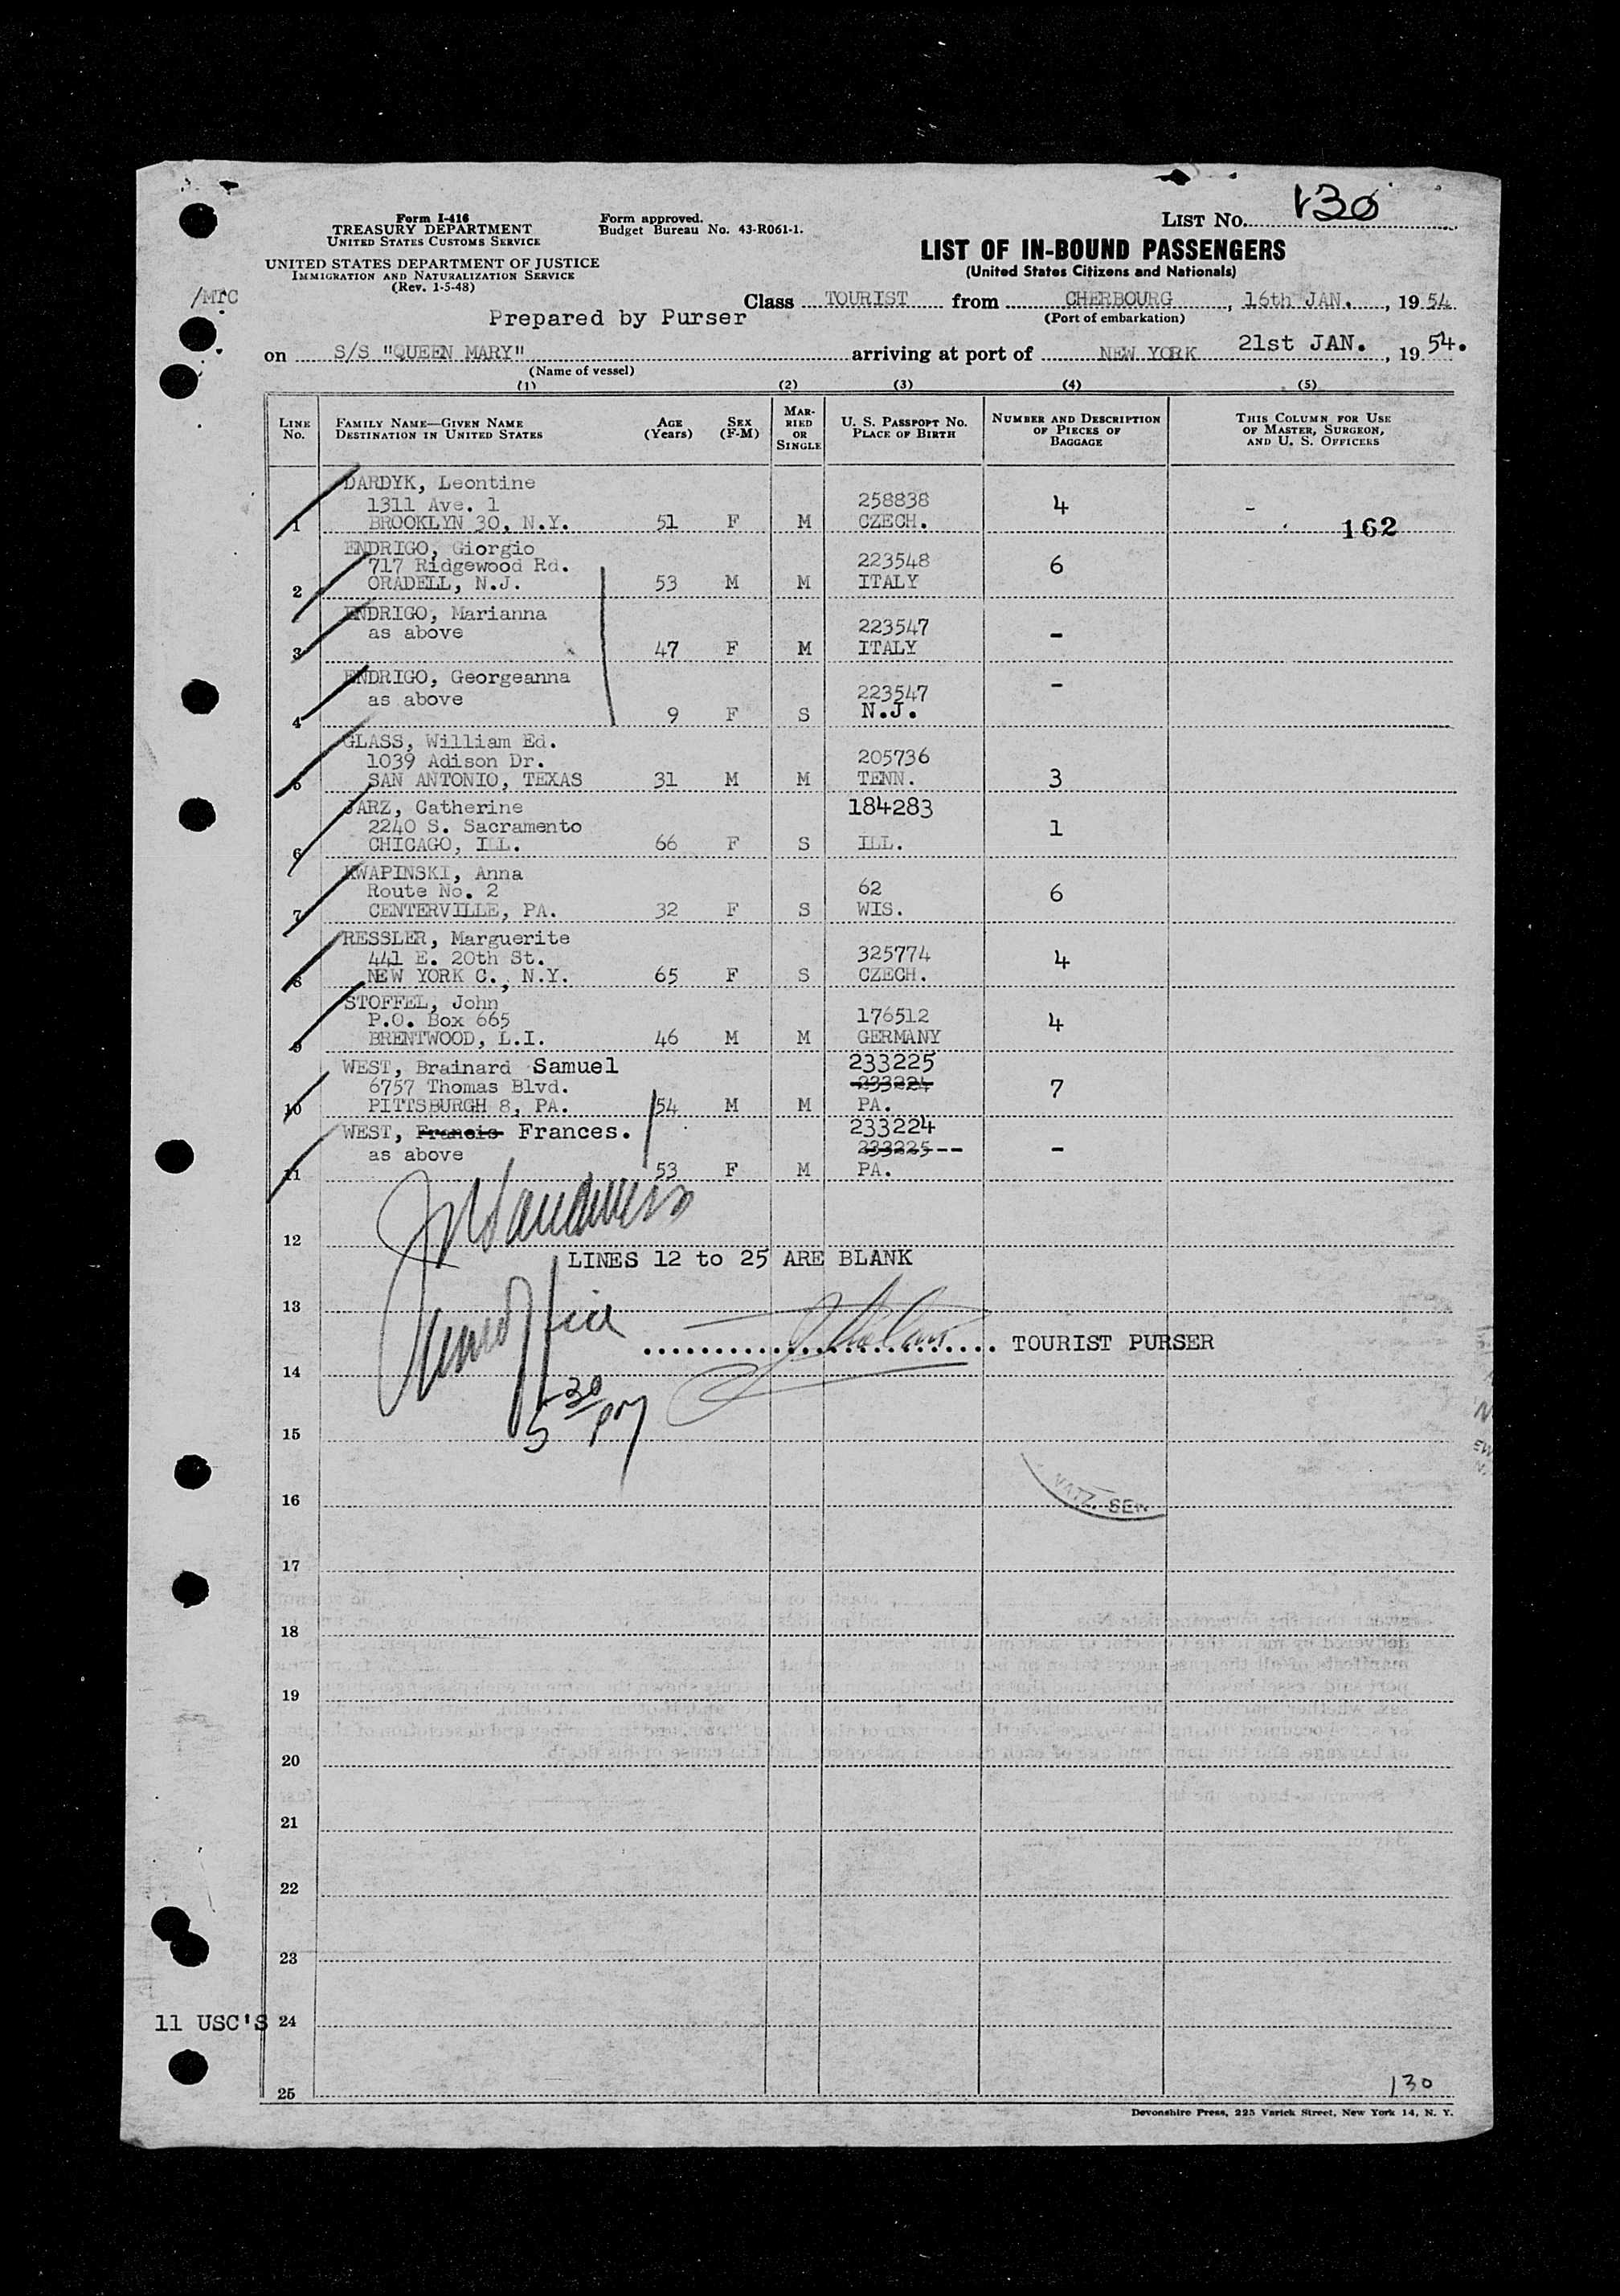 LIST No. 130
Form I-416
TREASURY DEPARTMENT
UNITED STATES CUSTOMS SERVICE
Form approved.
Budget Bureau No. 43-R061-1.
UNITED STATES DEPARTMENT OF JUSTICE
IMMIGRATION AND NATURALIZATION SERVICE
(Rev. 1-5-48)
LIST OF IN-BOUND PASSENGERS
(United States Citizens and Nationals)
Class TOURIST from CHERBOURG, 16th JAN., 1954
(Port of embarkation)
Prepared by Purser
on S/S "QUEEN MARY" arriving at port of NEW YORK 21st JAN., 1954.
(Name of vessel)
(1) (2) (3) (4) (5)
LINE No. FAMILY NAME—GIVEN NAME DESTINATION IN UNITED STATES AGE (Years) SEX (F-M) MARRIED OR SINGLE U. S. PASSPORT No. PLACE OF BIRTH NUMBER AND DESCRIPTION OF PIECES OF BAGGAGE THIS COLUMN FOR USE OF MASTER, SURGEON, AND U. S. OFFICERS
DARDYK, Leontine
1311 Ave. 1 258838 4
1 BROOKLYN 30, N.Y. 51 F M CZECH. 162
ENDRIGO, Giorgio
717 Ridgewood Rd. 223548 6
2 ORADELL, N.J. 53 M M ITALY
ENDRIGO, Marianna
as above 223547 -
3 47 F M ITALY
ENDRIGO, Georgeanna
as above 223547 -
4 9 F S N.J.
GLASS, William Ed.
1039 Adison Dr. 205736
5 SAN ANTONIO, TEXAS 31 M M TENN. 3
JARZ, Catherine 184283
2240 S. Sacramento 1
6 CHICAGO, ILL. 66 F S ILL.
KWAPINSKI, Anna
Route No. 2 62 6
7 CENTERVILLE, PA. 32 F S WIS.
RESSLER, Marguerite
441 E. 20th St. 325774 4
8 NEW YORK C., N.Y. 65 F S CZECH.
STOFFEL, John
P.O. Box 665 176512 4
9 BRENTWOOD, L.I. 46 M M GERMANY
WEST, Brainard Samuel 233225
6757 Thomas Blvd. 233224 7
10 PITTSBURGH 8, PA. 54 M M PA.
WEST, Francis Frances. 233224
as above 233225 -- -
11 53 F M PA.
12
LINES 12 to 25 ARE BLANK
13
TOURIST PURSER
14
5 30 PM
15
16
17
18
19
20
21
22
23
11 USC'S 24
25 130
Devonshire Press, 225 Varick Street, New York 14, N. Y.